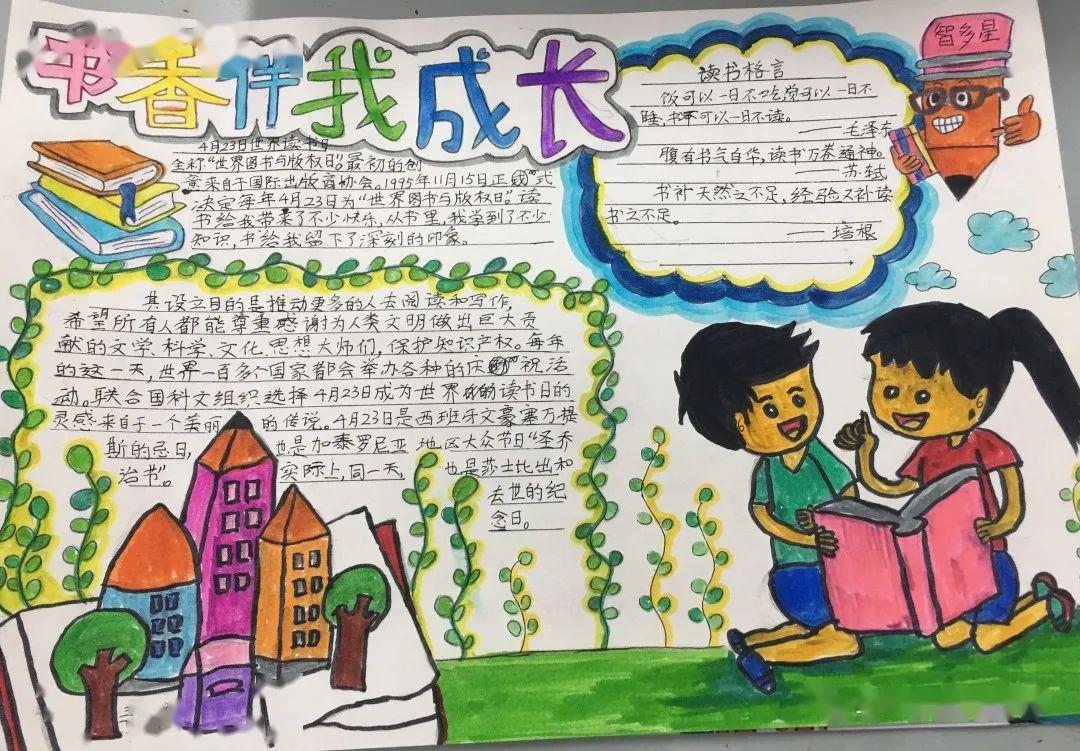 书香伴我成长
4月23日世界读书日
全称“世界图书与版权日”。最初的创
意来自于国际出版商协会。1995年11月15日正式
决定每年4月23日为“世界图书与版权日”。读
书给我带来了不少快乐，从书里，我学到了不少
知识，书给我留下了深刻的印象。
读书格言
饭可以一日不吃，觉可以一日不
睡，书不可以一日不读。
——毛泽东
腹有书气自华，读书万卷通神。
——苏轼
书补天然之不足，经验又补读
书之不足。
——培根
智多星
其设立目的是推动更多的人去阅读和写作，
希望所有人都能尊重感谢为人类文明做出巨大贡
献的文学、科学、文化、思想大师们，保护知识产权。每年
的这一天，世界一百多个国家都会举办各种的庆祝活
动。联合国科文组织选择4月23日成为世界的读书日的
灵感来自于一个美丽的传说。4月23日是西班牙文豪塞万提
斯的忌日，也是加泰罗尼亚地区大众节日“圣乔
治书”。实际上，同一天，也是莎士比出和
去世的纪
念日。